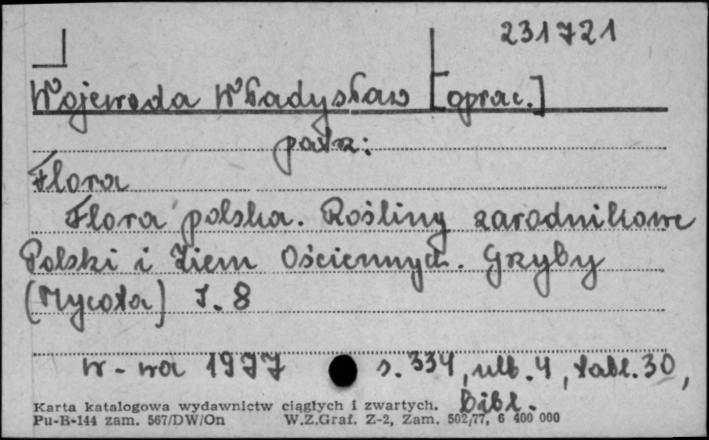 231721
Wojewoda Władysław [oprac.]
patrz:
Flora
Flora polska. Rośliny zarodnikowe
Polski i Ziem Ościennych. Grzyby
(Mycota) T. 8
W-wa 1977 s. 334, nlb. 4, tabl. 30,
Bibl.
Karta katalogowa wydawnictw ciągłych i zwartych.
Pu-B-144 zam. 567/DW/On W.Z.Graf. Z-2, Zam. 502/77, 6 400 000